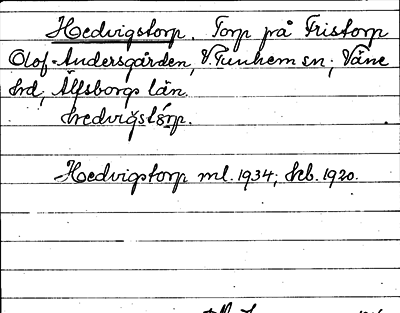 Hedvigstorp. Torp på Fristorp
Olof-Andersgården, V. Tunhem sn; Väne
hd, Älfsborgs län.
hedvigstórp.
Hedvigstorp ml. 1934; hfb. 1920.